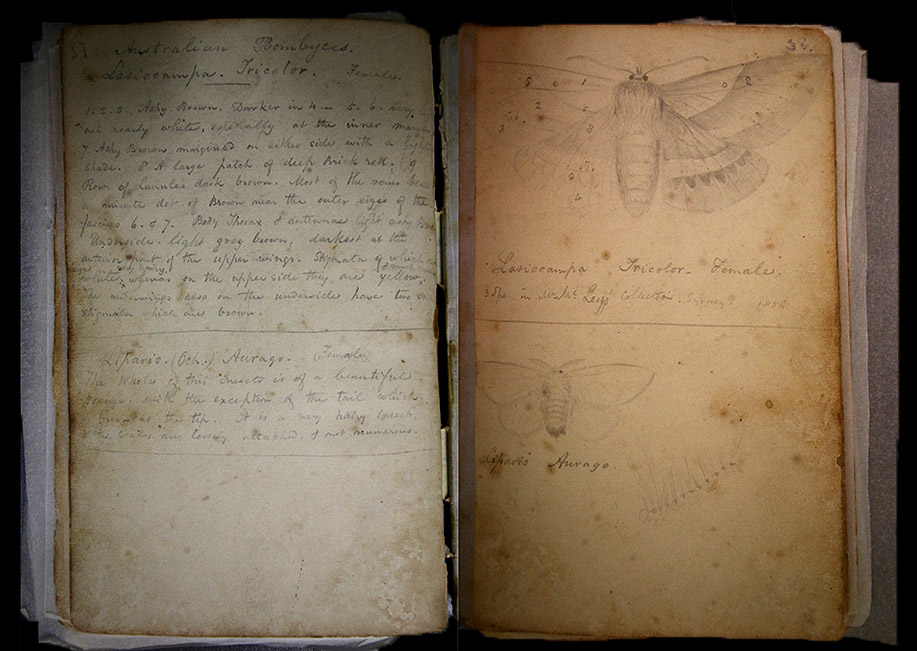 37
Australian Bombyces.
Lasiocampa. Tricolor. Females.
1. 2. 3. Ashy Brown. Darker in 4 — 5. 6. very
ash nearly white, especially at the inner margin
7. Ashy Brown margined on either side with a
shade. 8 A large patch of deep Brick red. 9
Row of Lunules dark brown. Most of the veins
a minute dot of Brown near the outer edges of the
fascies 6. & 7. Body Thorax & antennae light ashy
Underside. light grey brown, darkest at the
anterior part of the upper wings. Stigmata of which
white, whereas on the upper side they are yellow,
The underwings also on the underside have two
Stigmata which are brown.
Liparis. (Och.) Aurago. (Female)
The Whole of this Insect is of a beautiful
Orange. with the exception of the tail which
brown at the tip. It is a very hairy insect.
& the scales are loosely attached. & not numerous.
38.
5 6 1
2
3
8
7
9
4
Lasiocampa Tricolor - Female.
3 Spe. in Mr. Mc Leay's Collection. Sydney.
Liparis Aurago.